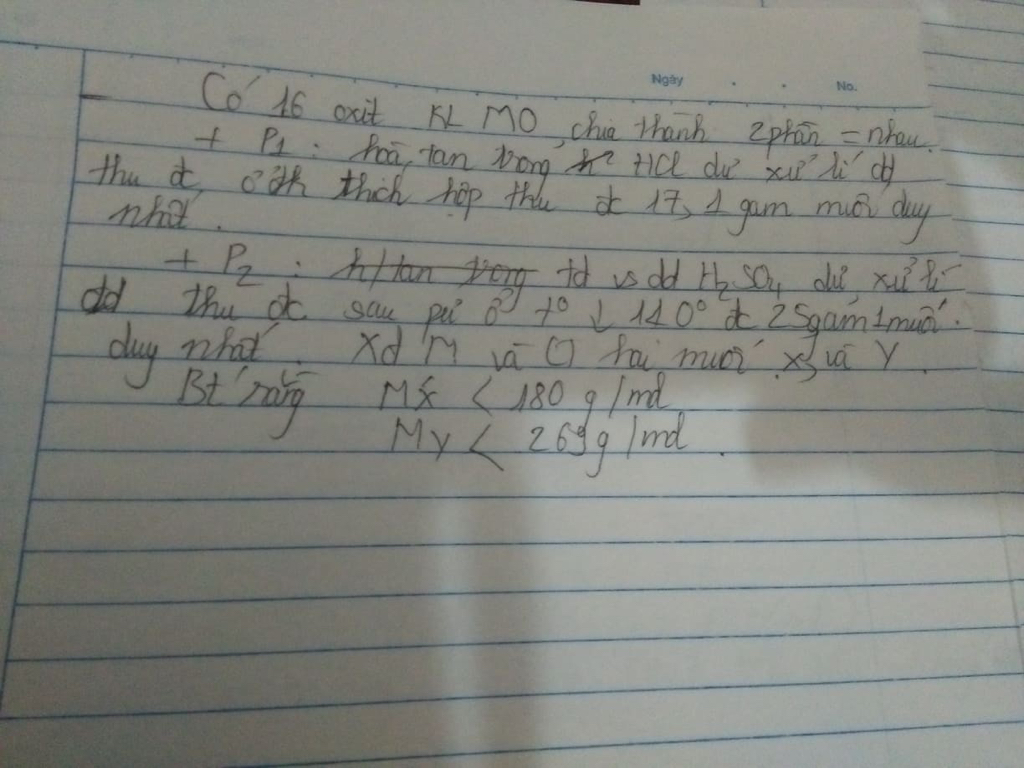 Ngày . . No.
Có 16 oxit KL MO, chia thành 2 phần = nhau.
+ P1 : hoà tan trong HCl dư xử lí dd
thu đc ở đk thích hợp thu đc 17,1 gam muối duy
nhất.
+ P2 : h/tan trong td vs dd H2SO4 dư, xử lí
dd thu đc sau pứ ở t° ↓ 110° đc 25gam 1 muối
duy nhất. Xđ M và hai muối X và Y.
Bt rằng MX < 180 g/mol
MY < 269 g/mol.